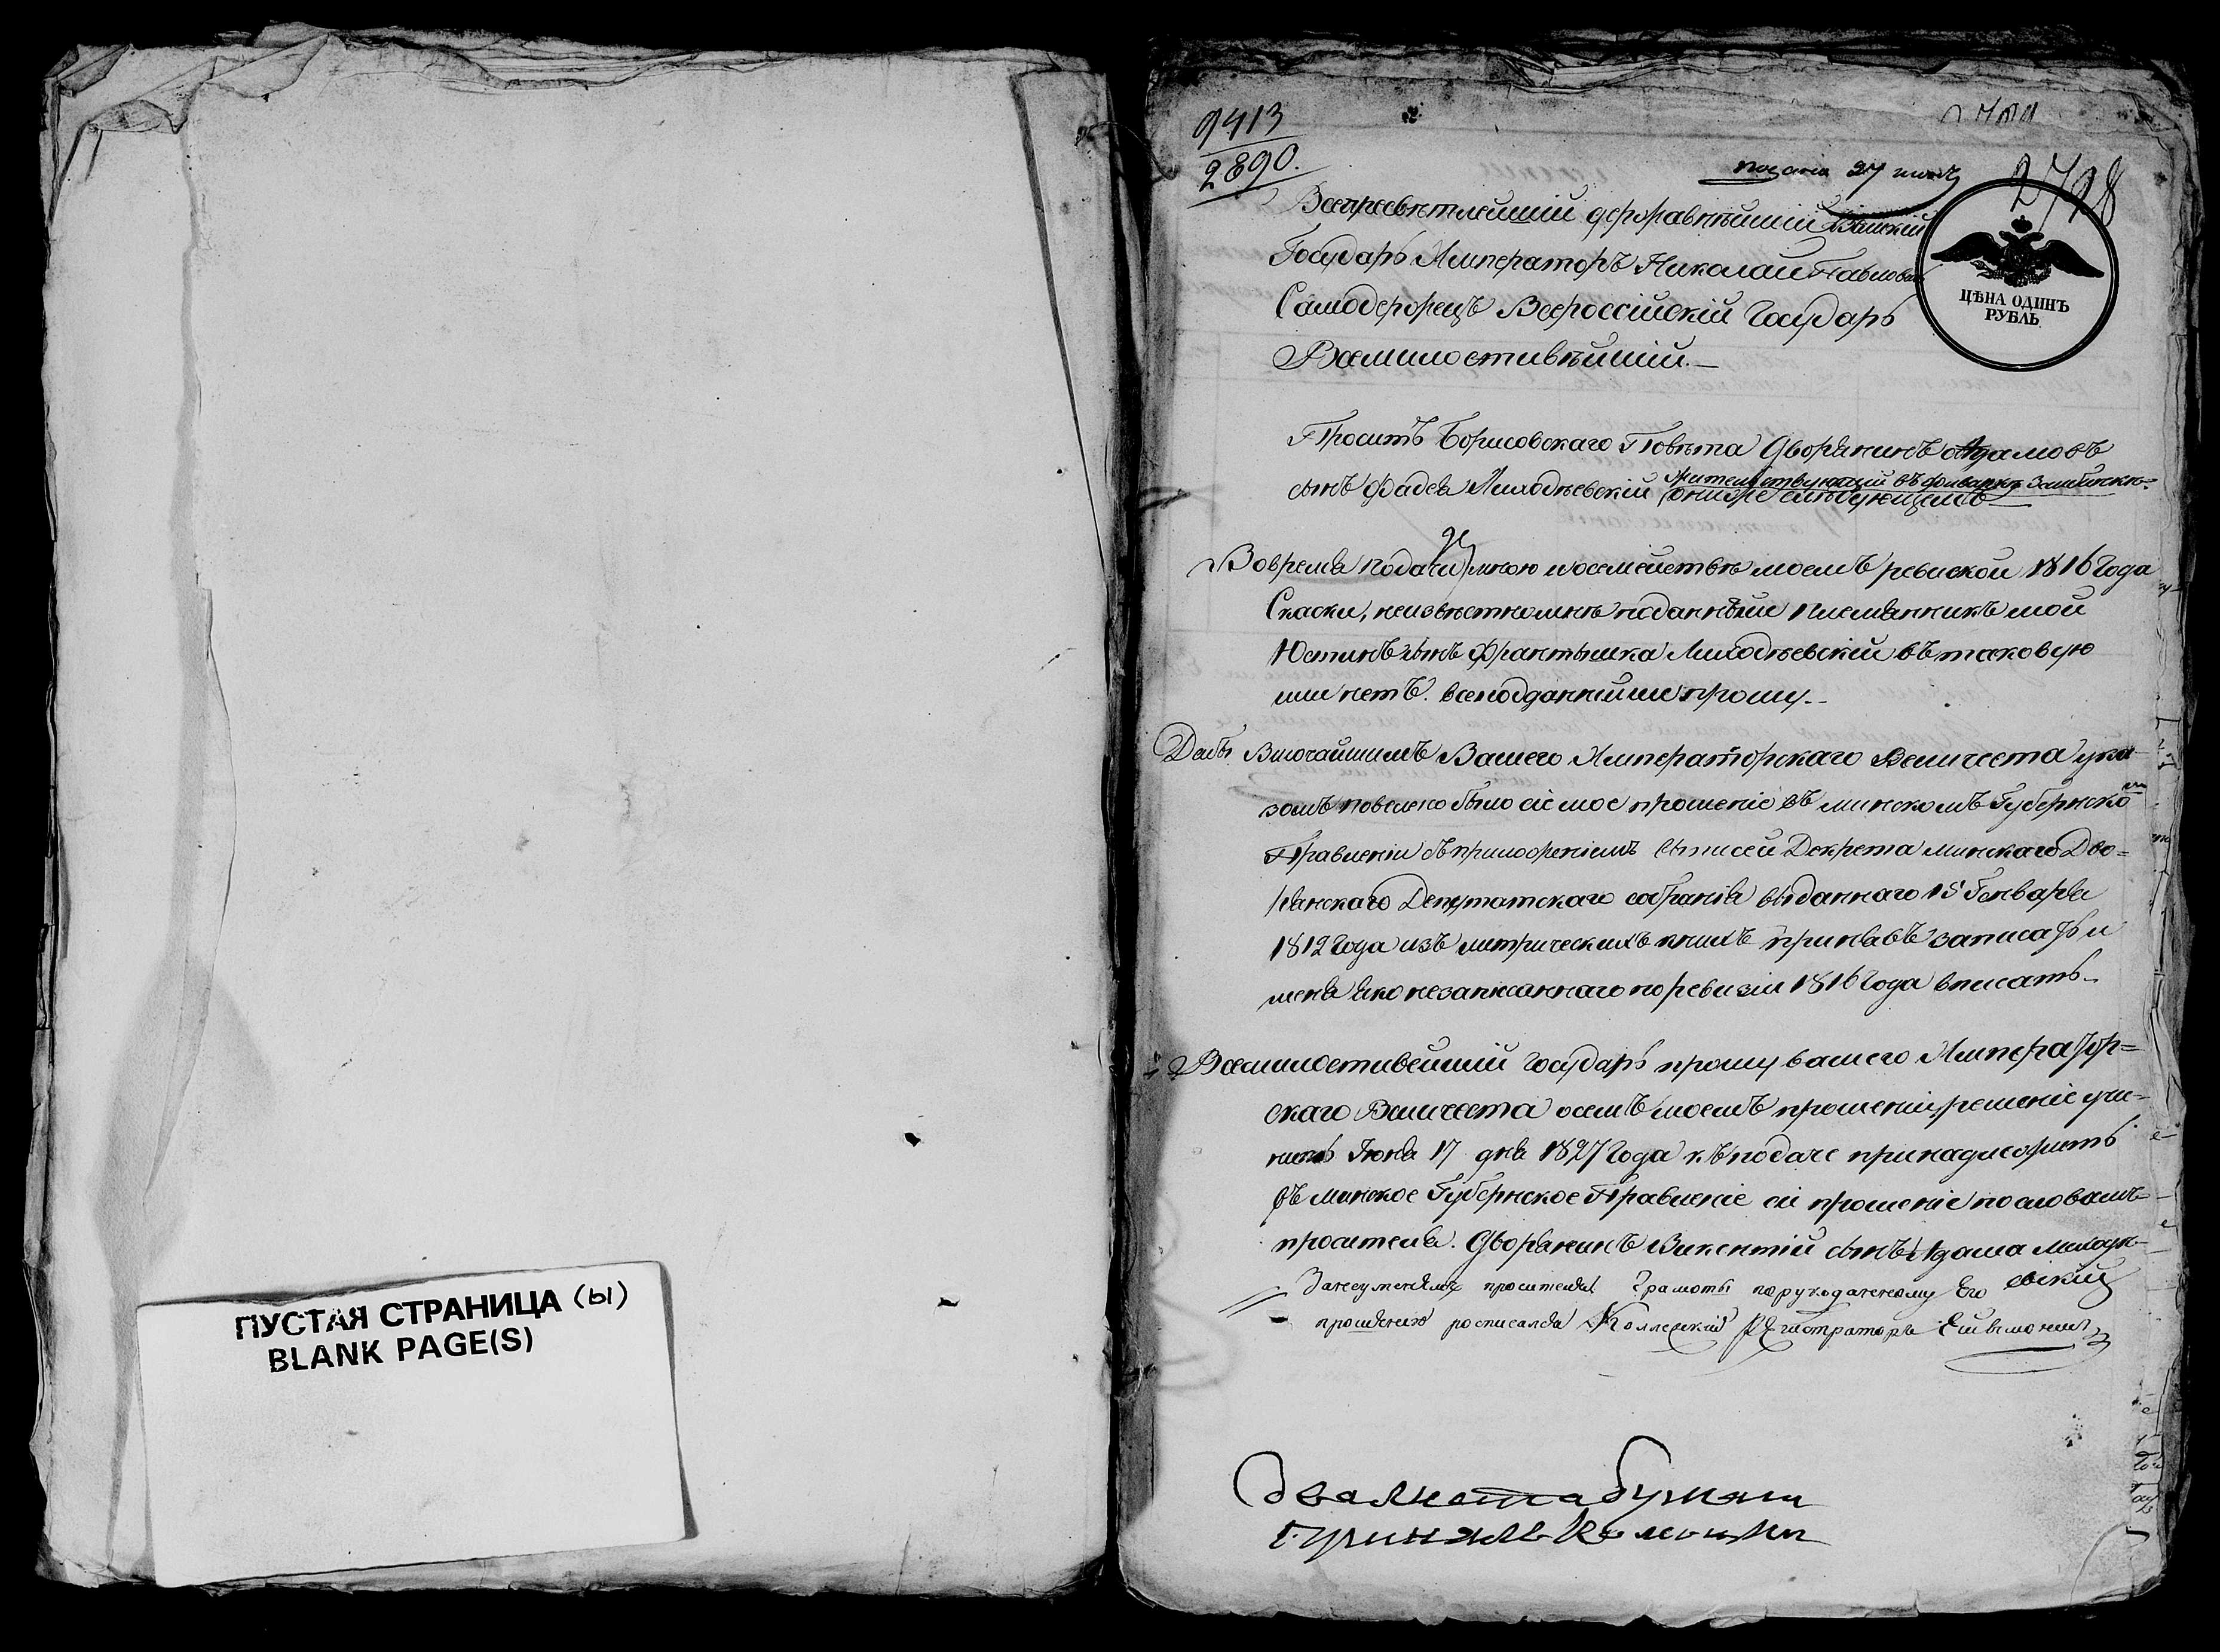 ПУСТАЯ СТРАНИЦА (ы)
BLANK PAGE(S)
9413
2890.
2728
ЦѢНА ОДИНЪ
РУБЛЬ
Всепресвѣтлейшій державнѣйшій Великій
Государь Императоръ Николай Павловичъ
Самодержецъ Всероссійскій Государь
Всемилостивѣйшій.—
Проситъ Борисовскаго Повѣта Дворянинъ Адамовъ
сынъ
жительствующій въ фольварку
о нижеслѣдующемъ—
Во время подачи мною о семействѣ моемъ ревиской 1816 года
Скаски, неизвѣстно мнѣ поданъ ли племянникъ мой
Юстинъ сынъ Францишка въ таковую
или нетъ. всеподданнійше прошу.—
Дабы Высочайшимъ Вашего Императорскаго Величеста ука-
зомъ повелено было сіе мое прошеніе въ минскомъ Губернско
Правленіи съ приложеніемъ Выписей Декрета минскаго Дво=
рянскаго Депутатскаго собранія выданнаго 15 Генваря
1812 года изъ метрическихъ книхъ принявъ записать и
меня яко незаписаннаго по ревизіи 1816 года вписать—
Всемилостивейшій Государь прошу вашего Император=
скаго Величеста о семъ моемъ прошеніи, решеніе учи-
нить Іюня 17 дня 1827 года къ подаче принадлежитъ
въ минское Губернское Правленіе сіе прошеніе по словамъ
просителя. Дворянинъ Викентій сынъ Адама
просителя Грамоты по рукоданному Его
прошенію росписался Коллежскій Регистраторъ
два листа бумаги